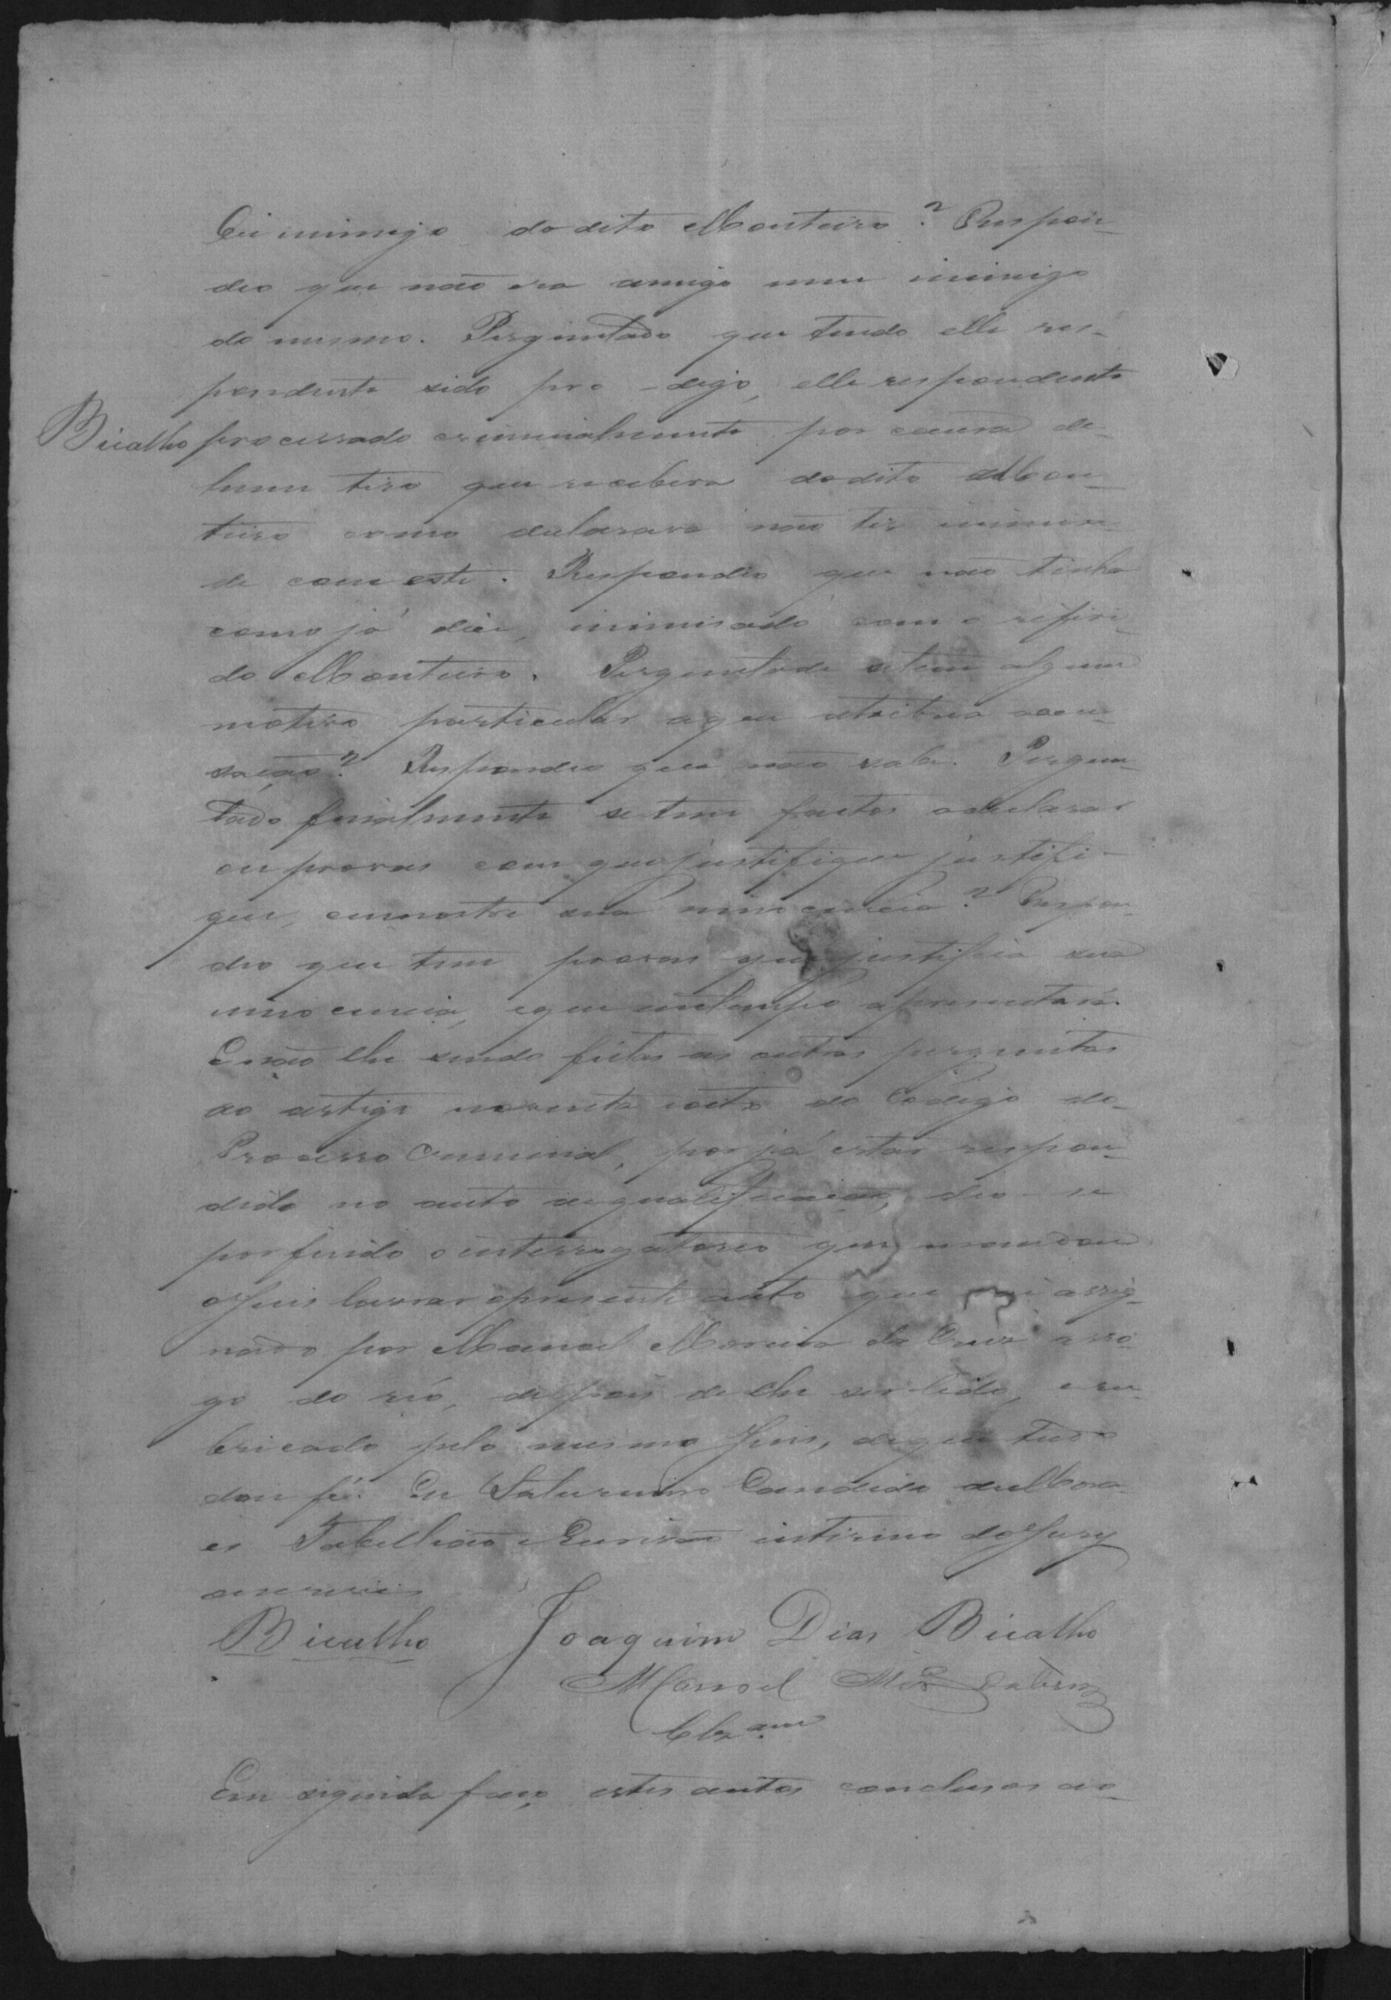 inimigo do dito Monteiro? Respon-
deo que não era amigo nem inimigo
do mesmo. Perguntado que tendo elle res-
pondente sido pro - digo, elle respondente
Bicalho processado criminalmente por causa de
hum tiro que recebera do dito Mon-
teiro como declarava não ter inimisa-
de com este. Respondeo que não tinha
como já dice, inimisade com o referi-
do Monteiro. Perguntado se tem algum
motivo particular a que attribua accu-
sação? Respondeo que não sabe. Pergun-
tado finalmente se tem factos a declarar
ou provas com que justifique justifi-
que, e mostre sua innocencia? Respon-
deo que tem provas que justifica sua
innocencia, e que em tempo apresentará.
E não lhe sendo feitas as outras perguntas
do artigo noventa e oito do Codigo do
Processo Criminal, por já estar respon-
dido no auto de qualificação, deo-se
por findo o interrogatorio que mandou
o Juis lavrar o presente auto que vai assig-
nado por Manoel Moreira da Cruz a ro-
go do réo, depois de lhe ser lido, e ru-
bricado pelo mesmo Juis, de que tudo
dou fé. Eu Saturnino Candido de Mora-
es Tabellião e Escrivão interino do Jury
o escrevi
Bicalho Joaquim Dias Bicalho
Manoel Mor.ª da Cruz
Clz.am
Em seguida faço estes autos conclusos ao